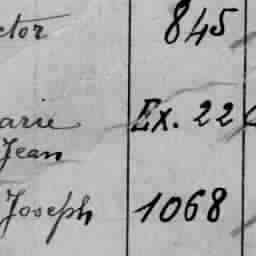 ctor 845
arie Ex. 22
Jean
Joseph 1068